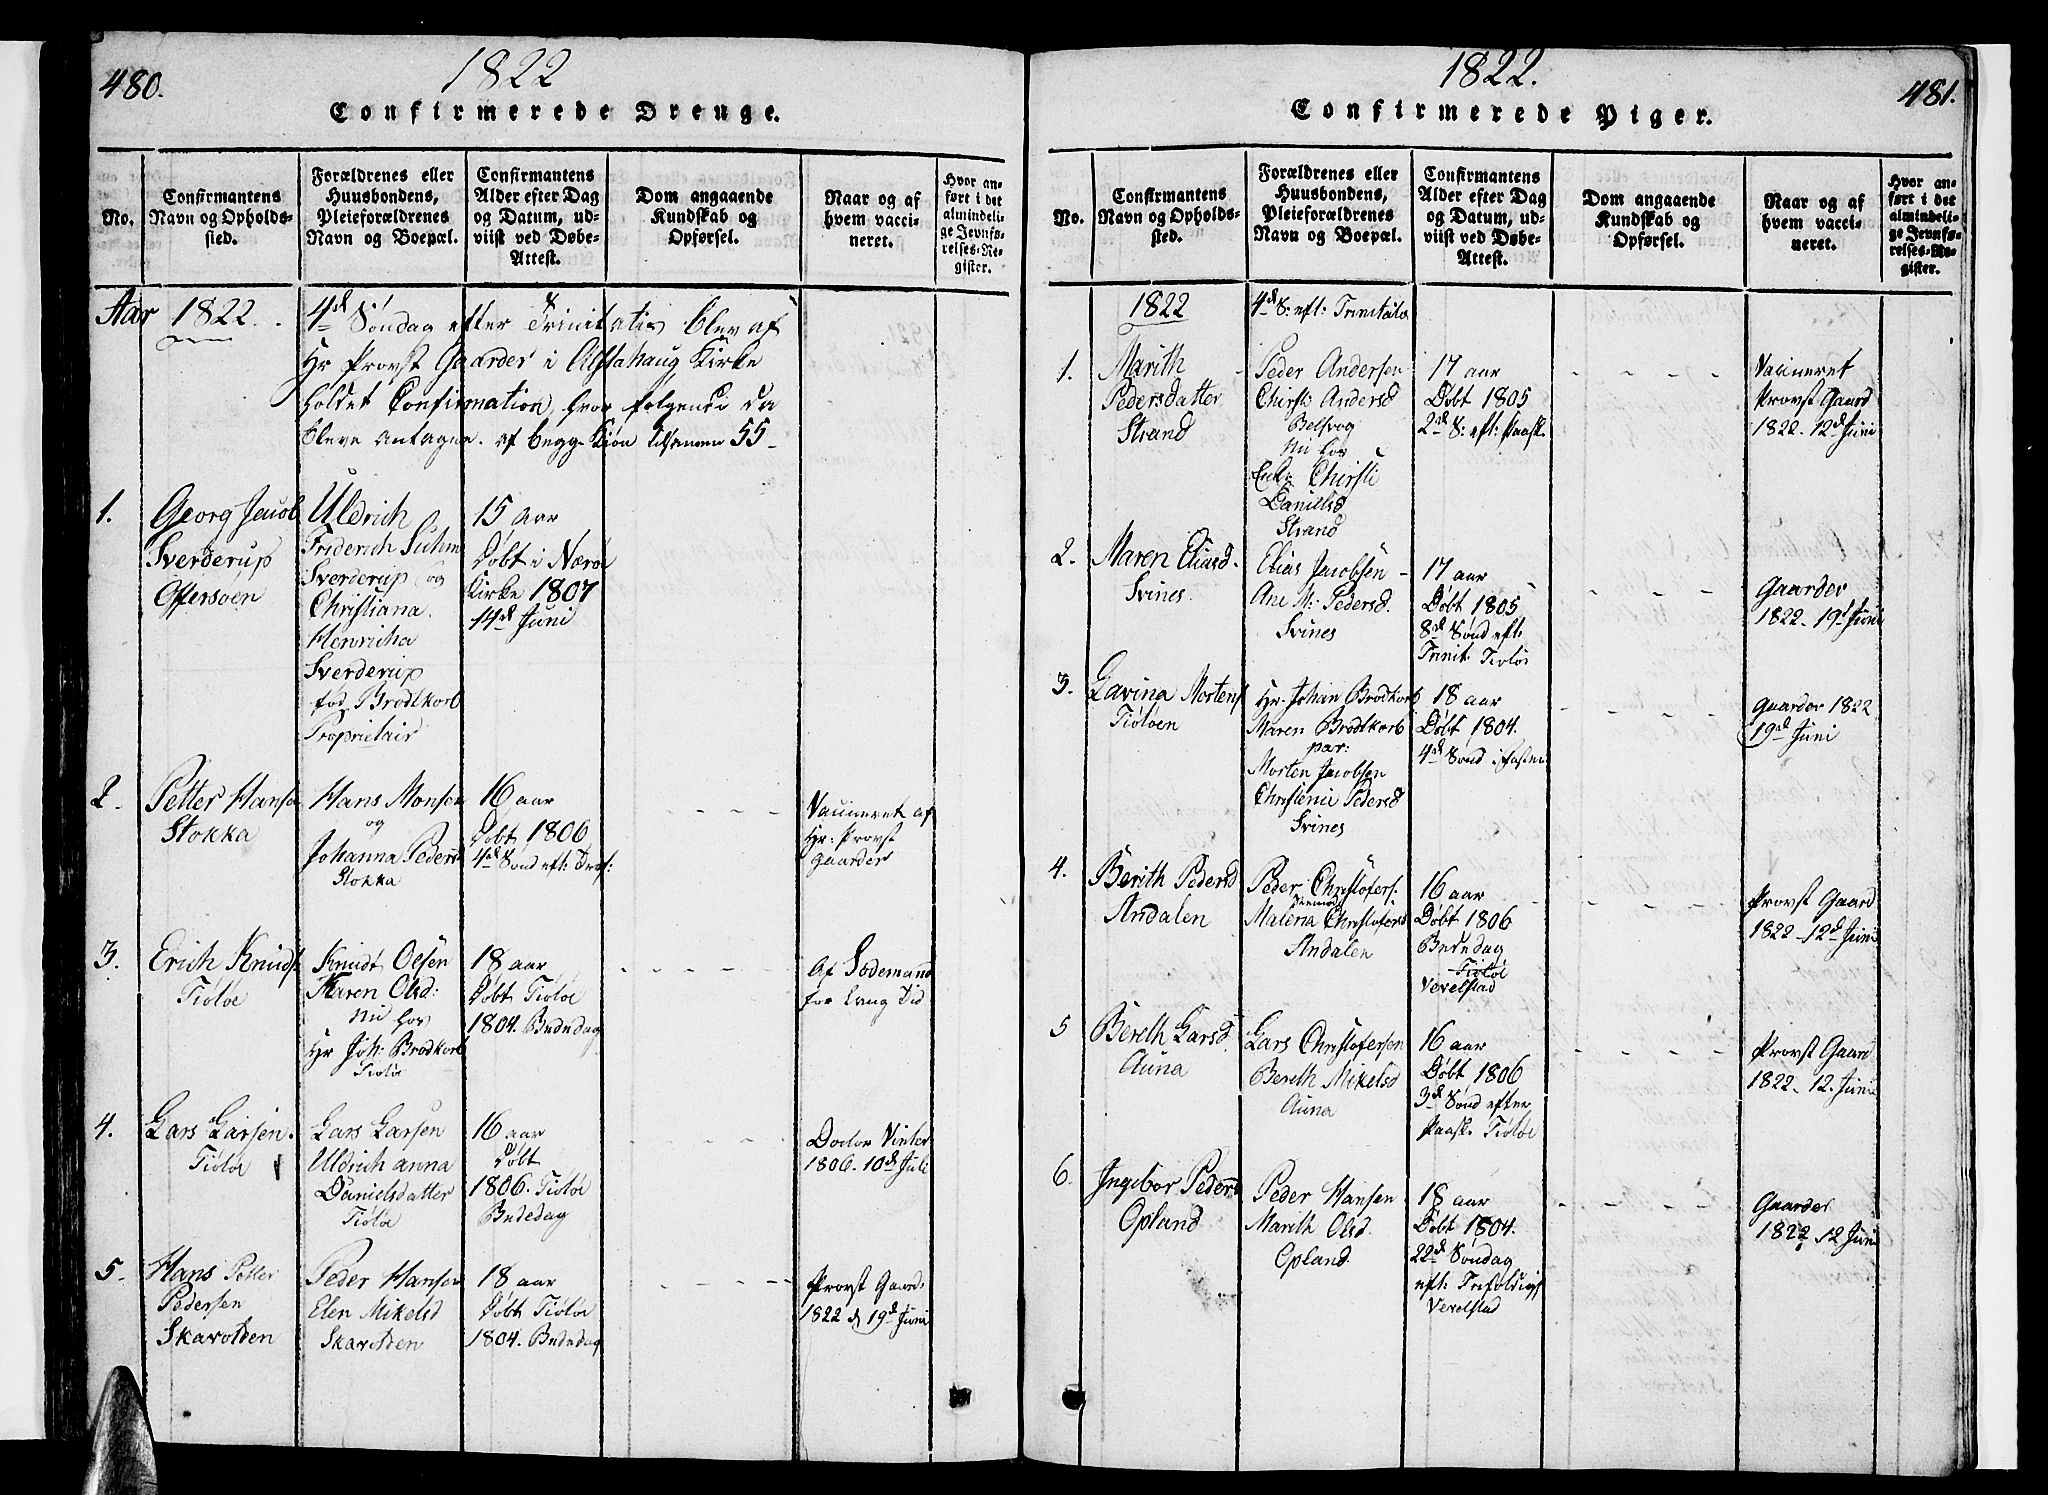 480.
1822
Confirmerede Drenge.
No.
Confirmantens
Navn og Opholds-
sted.
Forældrenes eller
Huusbondens,
Pleieforældrenes
Navn og Boepæl.
Confirmantens
Alder efter Dag
og Datum, ud-
viist ved Døbe-
Attest.
Dom angaaende
Kundskab og
Opførsel.
Naar og af
hvem vacci-
neret.
Hvor an-
ført i det
almindeli-
ge Jevnfø-
relses-Re-
gister.
Aar 1822.
4de Søndag efter Trinitatis blev af
Hr Provst Gaarder i Alstahaug Kirke
holdet Confirmation, hvor følgende da
bleve antagne. af begge Kiøn tilsammen 55-
1.
Georg Jacob
Sverderup
Offersøen
Uldrich
Friderich Suhm
Sverderup og
Christiana
Henricha
Sverderup
fød Brodtkorb
Proprietair
15 Aar
Døbt i Nærøe
Kirke 1807
14de Juni
2.
Petter Hansen
Stokka
Hans Monsen
og
Johanna Pedersd
Stokka
16 aar
Døbt 1806
4de Sønd eft:
Vaccineret af
Hr: Provst
Gaarder
3.
Erich Knuds
Tiøtøe
Knudt Olsen
Karen Olsd:
Nu hos
Hr Joh: Brodkorb
Tiøtøe
18 aar
Døbt Tiøtøe
1804. Bededag
Af Sodemand
for lang Tid
4.
Lars Larsen.
Tiøtøe
Lars Larsen
Uldrich anna
Danielsdatter
Tiøtøe
16 aar
Døbt
1806. Tiøtøe
Bededag
Doctor Vinter
1806. 10de Juli
5.
Hans Petter
Pedersen
Skarolden
Peder Hansen
Elen Mikelsd
Skarolden
18 aar
Døbt Tiøtøe
1804. Bededag
Provst Gaard:
1822 d 19de Juni
481.
1822.
Confirmerede Piger.
No.
Confirmantens
Navn og Opholds-
sted.
Forældrenes eller
Huusbondens,
Pleieforældrenes
Navn og Boepæl.
Confirmantens
Alder efter Dag
og Datum, ud-
viist ved Døbe-
Attest.
Dom angaaende
Kundskab og
Opførsel.
Naar og af
hvem vacci-
neret.
Hvor an-
ført i det
almindeli-
ge Jevnfø-
relses-Re-
gister.
1822
4de S: eft: Trinitatis
1.
Marith
Pedersdatter
Strand
Peder Andersen
Chirsti Andersd
Belsvog
Nu hos
Enke Chirsti
Danielsd
Strand
17 aar
Døbt 1805
2de S: eft: Paaske
Vaccineret
Provst Gaard
1822. 12de Juni
2.
Maren Eliasd.
Svines.
Elias Jacobsen
Ane M: Pedersd.
Svines
17 aar
Døbt 1805
8de Sønd eft:
Trinit: Tiøtøe
Gaarder
1822. 19de Juni
3.
Lavina Mortens
Tiøtøen
Hr. Johan Brodkorb
Maren Brodtkorb
par:
Morten Jacobsen
Christence Pedersd
Svines
18 aar
Døbt 1804.
4de Sønd i Fasten
Gaarder 1822
19de Juni
4.
Berith Pedersd
Andalen
Peder Christofers:
Malena Christofersd
Andalen
16 aar
Døbt 1806
Bededag
Tiøtøe
Vevelstad
Provst Gaard
1822. 12de Juni
5
Bereth Larsd.
Auna
Lars Christofersen
Bereth Mikelsd
Auna
16 aar
Døbt 1806
3de Sønd efter
Paaske Tiøtøe
Provst Gaard
1822. 12. Juni
6.
Ingebor Pedersd
Opland
Peder Hansen
Marith Olsd.
Opland.
18 aar
Døbt 1804.
22de Søndag
eft: Trefoldigs
Vevelstad
Gaarder
1822 12 Juni